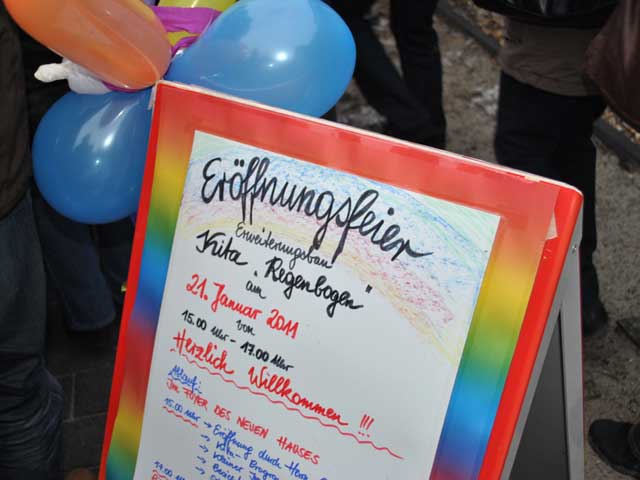 Eröffnungsfeier
Erweiterungsbau
Kita "Regenbogen"
am
21. Januar 2011
von
15.00 Uhr - 17.00 Uhr
Herzlich Willkommen !!!
Ablauf:
IM FOYER DES NEUEN HAUSES
15.00 Uhr → Eröffnung durch Herr
→ Kita-
→ kleiner